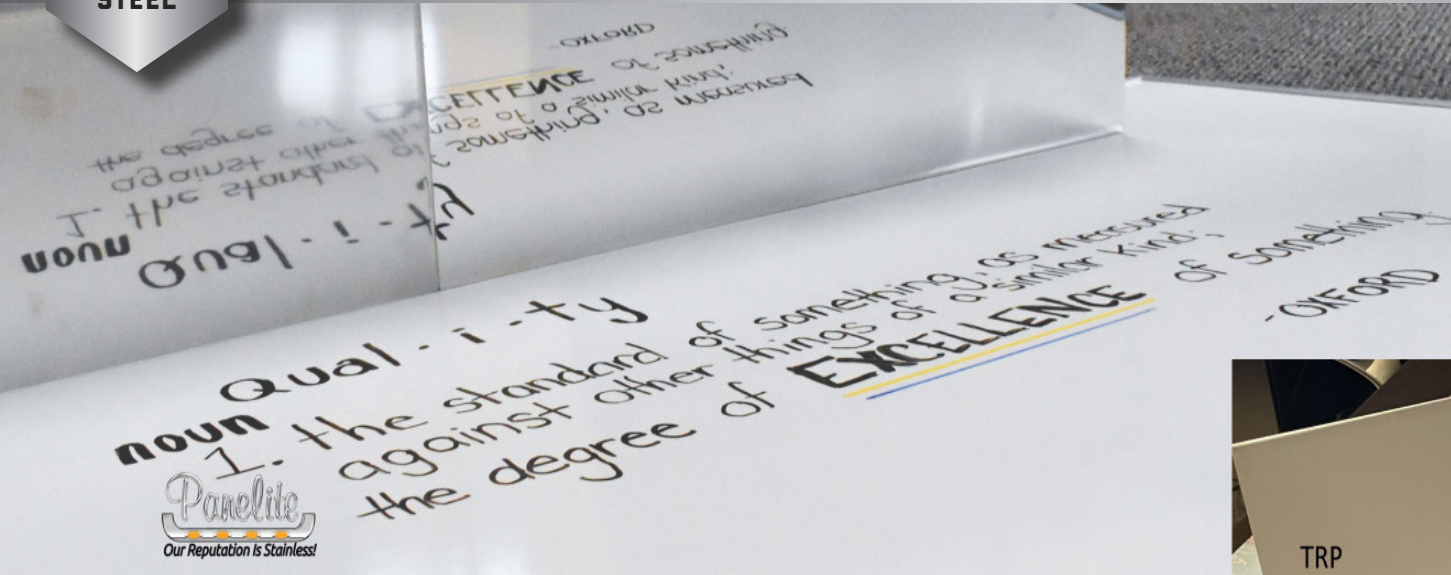 STEEL
Qual-i-ty
noun
1. the standard of something, as measured
against other things of a similar kind;
the degree of EXCELLENCE of something.
-OXFORD
Panelite
Our Reputation Is Stainless!
TRP